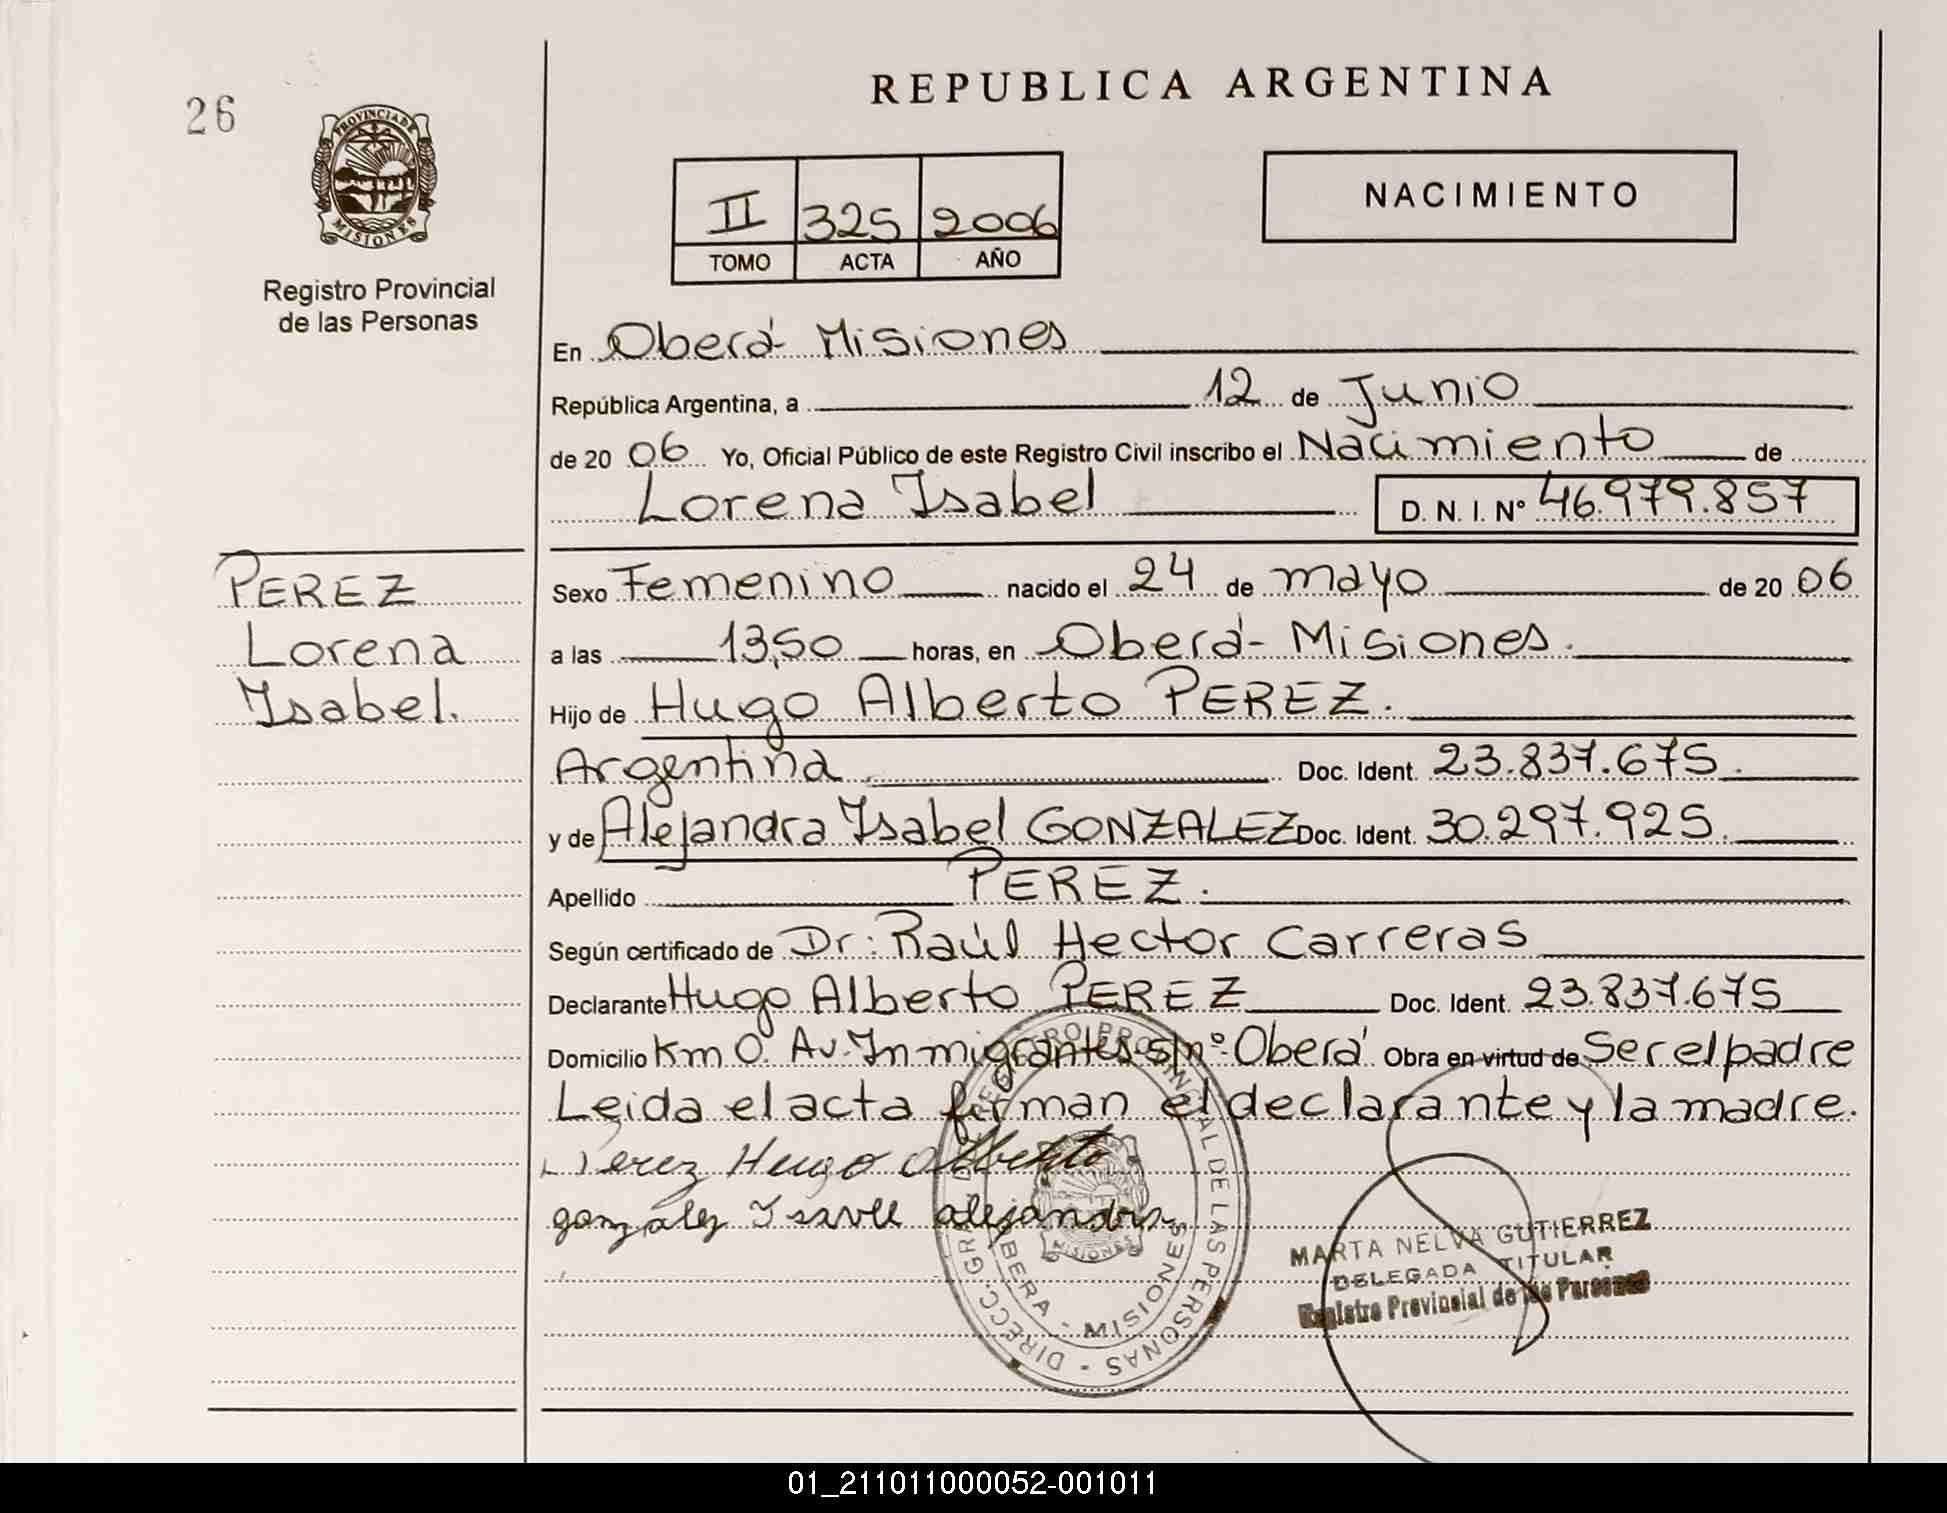 26
PROVINCIA DE
MISIONES
Registro Provincial
de las Personas
REPUBLICA ARGENTINA
II 325 2006
TOMO ACTA AÑO
NACIMIENTO
En Oberá- Misiones
República Argentina, a 12 de Junio
de 20 06 Yo, Oficial Público de este Registro Civil inscribo el Nacimiento de
Lorena Isabel D. N. I. Nº 46.979.857
PEREZ
Lorena
Isabel.
Sexo Femenino nacido el 24 de mayo de 20 06
a las 13,50 horas, en Oberá- Misiones.
Hijo de Hugo Alberto PEREZ.
Argentina Doc. Ident. 23.837.675.
y de Alejandra Isabel GONZALEZ Doc. Ident. 30.297.925.
Apellido PEREZ.
Según certificado de Dr: Raúl Hector Carreras
Declarante Hugo Alberto PEREZ Doc. Ident. 23.837.675
Domicilio Km 0. Av. Inmigrantes s/nº Oberá Obra en virtud de Ser el padre
Leida el acta firman el declarante y la madre.
Perez Hugo Alberto
gonzalez Isavel alejandra
DIRECC. GRAL. DE REGISTRO PROVINCIAL DE LAS PERSONAS -
OBERA - MISIONES
MISIONES
MARTA NELVA GUTIERREZ
DELEGADA TITULAR
Registro Provincial de las Personas
01_211011000052-001011